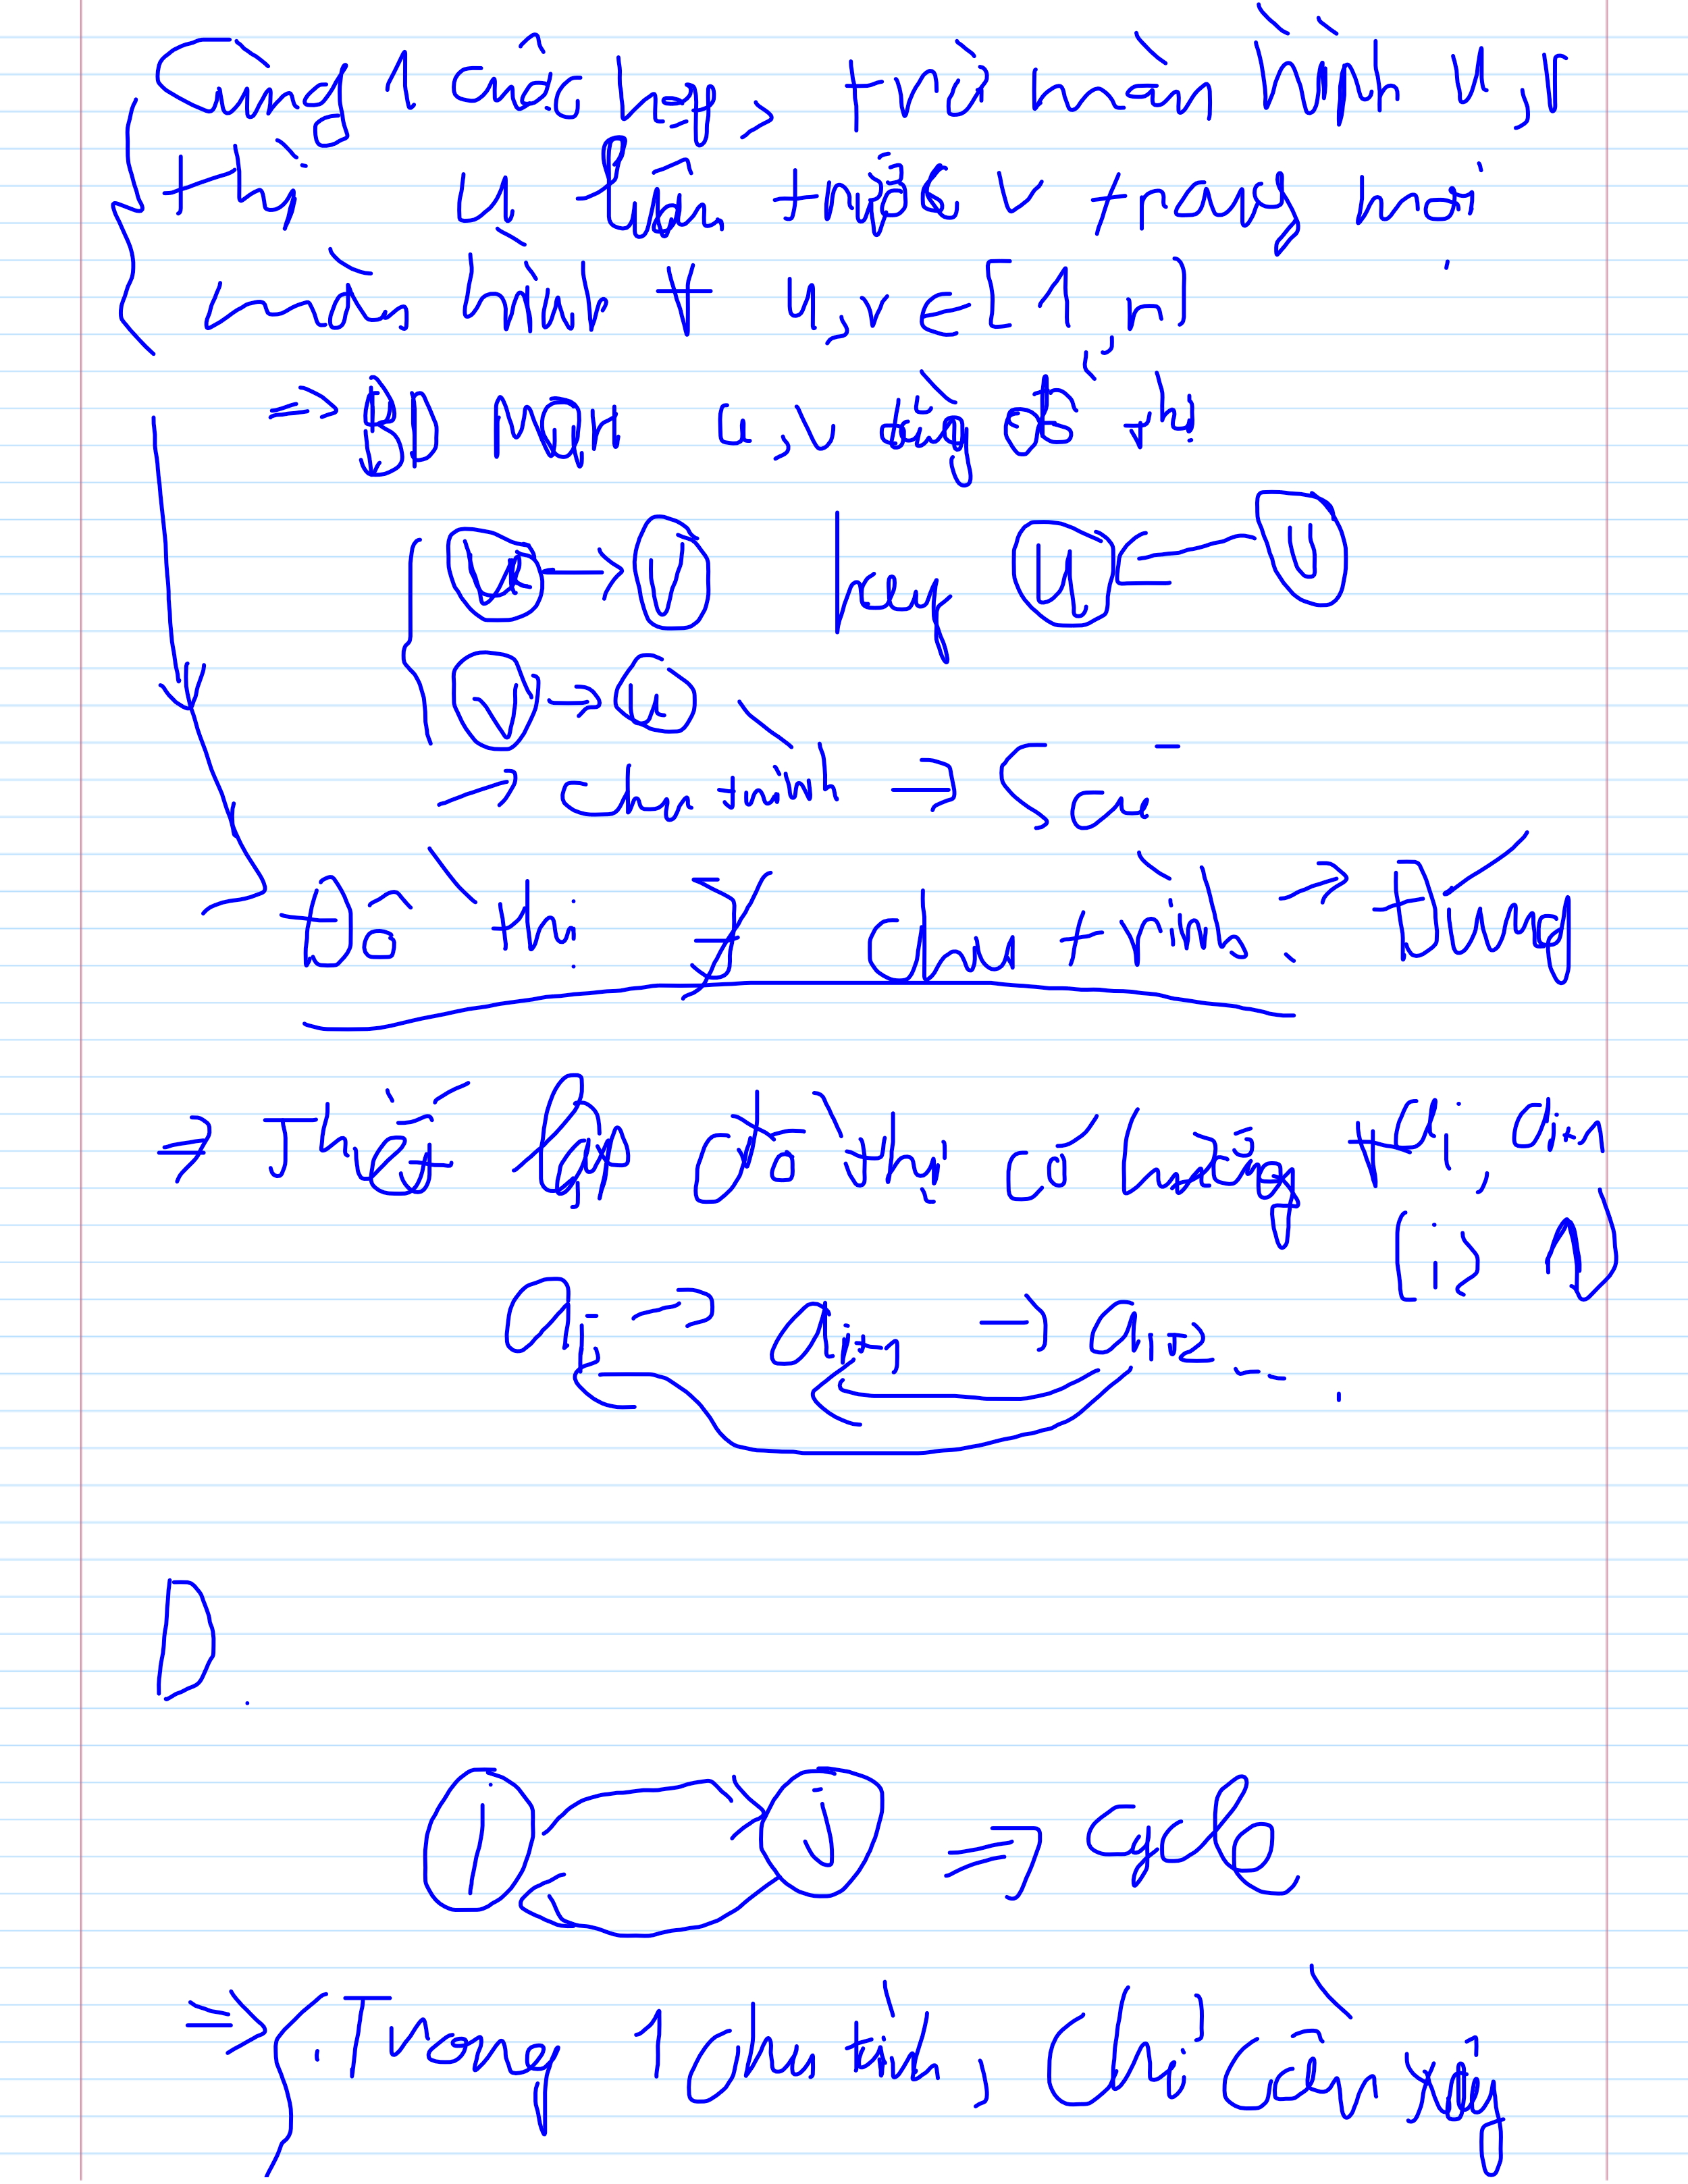 Cùng 1 cách, trừ màn hình u,v
thì u luôn trước v trong mọi
màn hình ≠ u, v ∈ [1, n]
⇒ Do u, v đồ thị
u → v hay u → v
v → u
→ chu trình → Sai
Đồ thị ∄ chu trình → Đúng
⇒ Thiết lập đồ thị có hướng từ a_i, a_i+1
(i, n)
a_i → a_i+1 → a_i+2 ...
D.
i j ⇒ cycle
⇒ . Trong 1 chu trình, chỉ cần